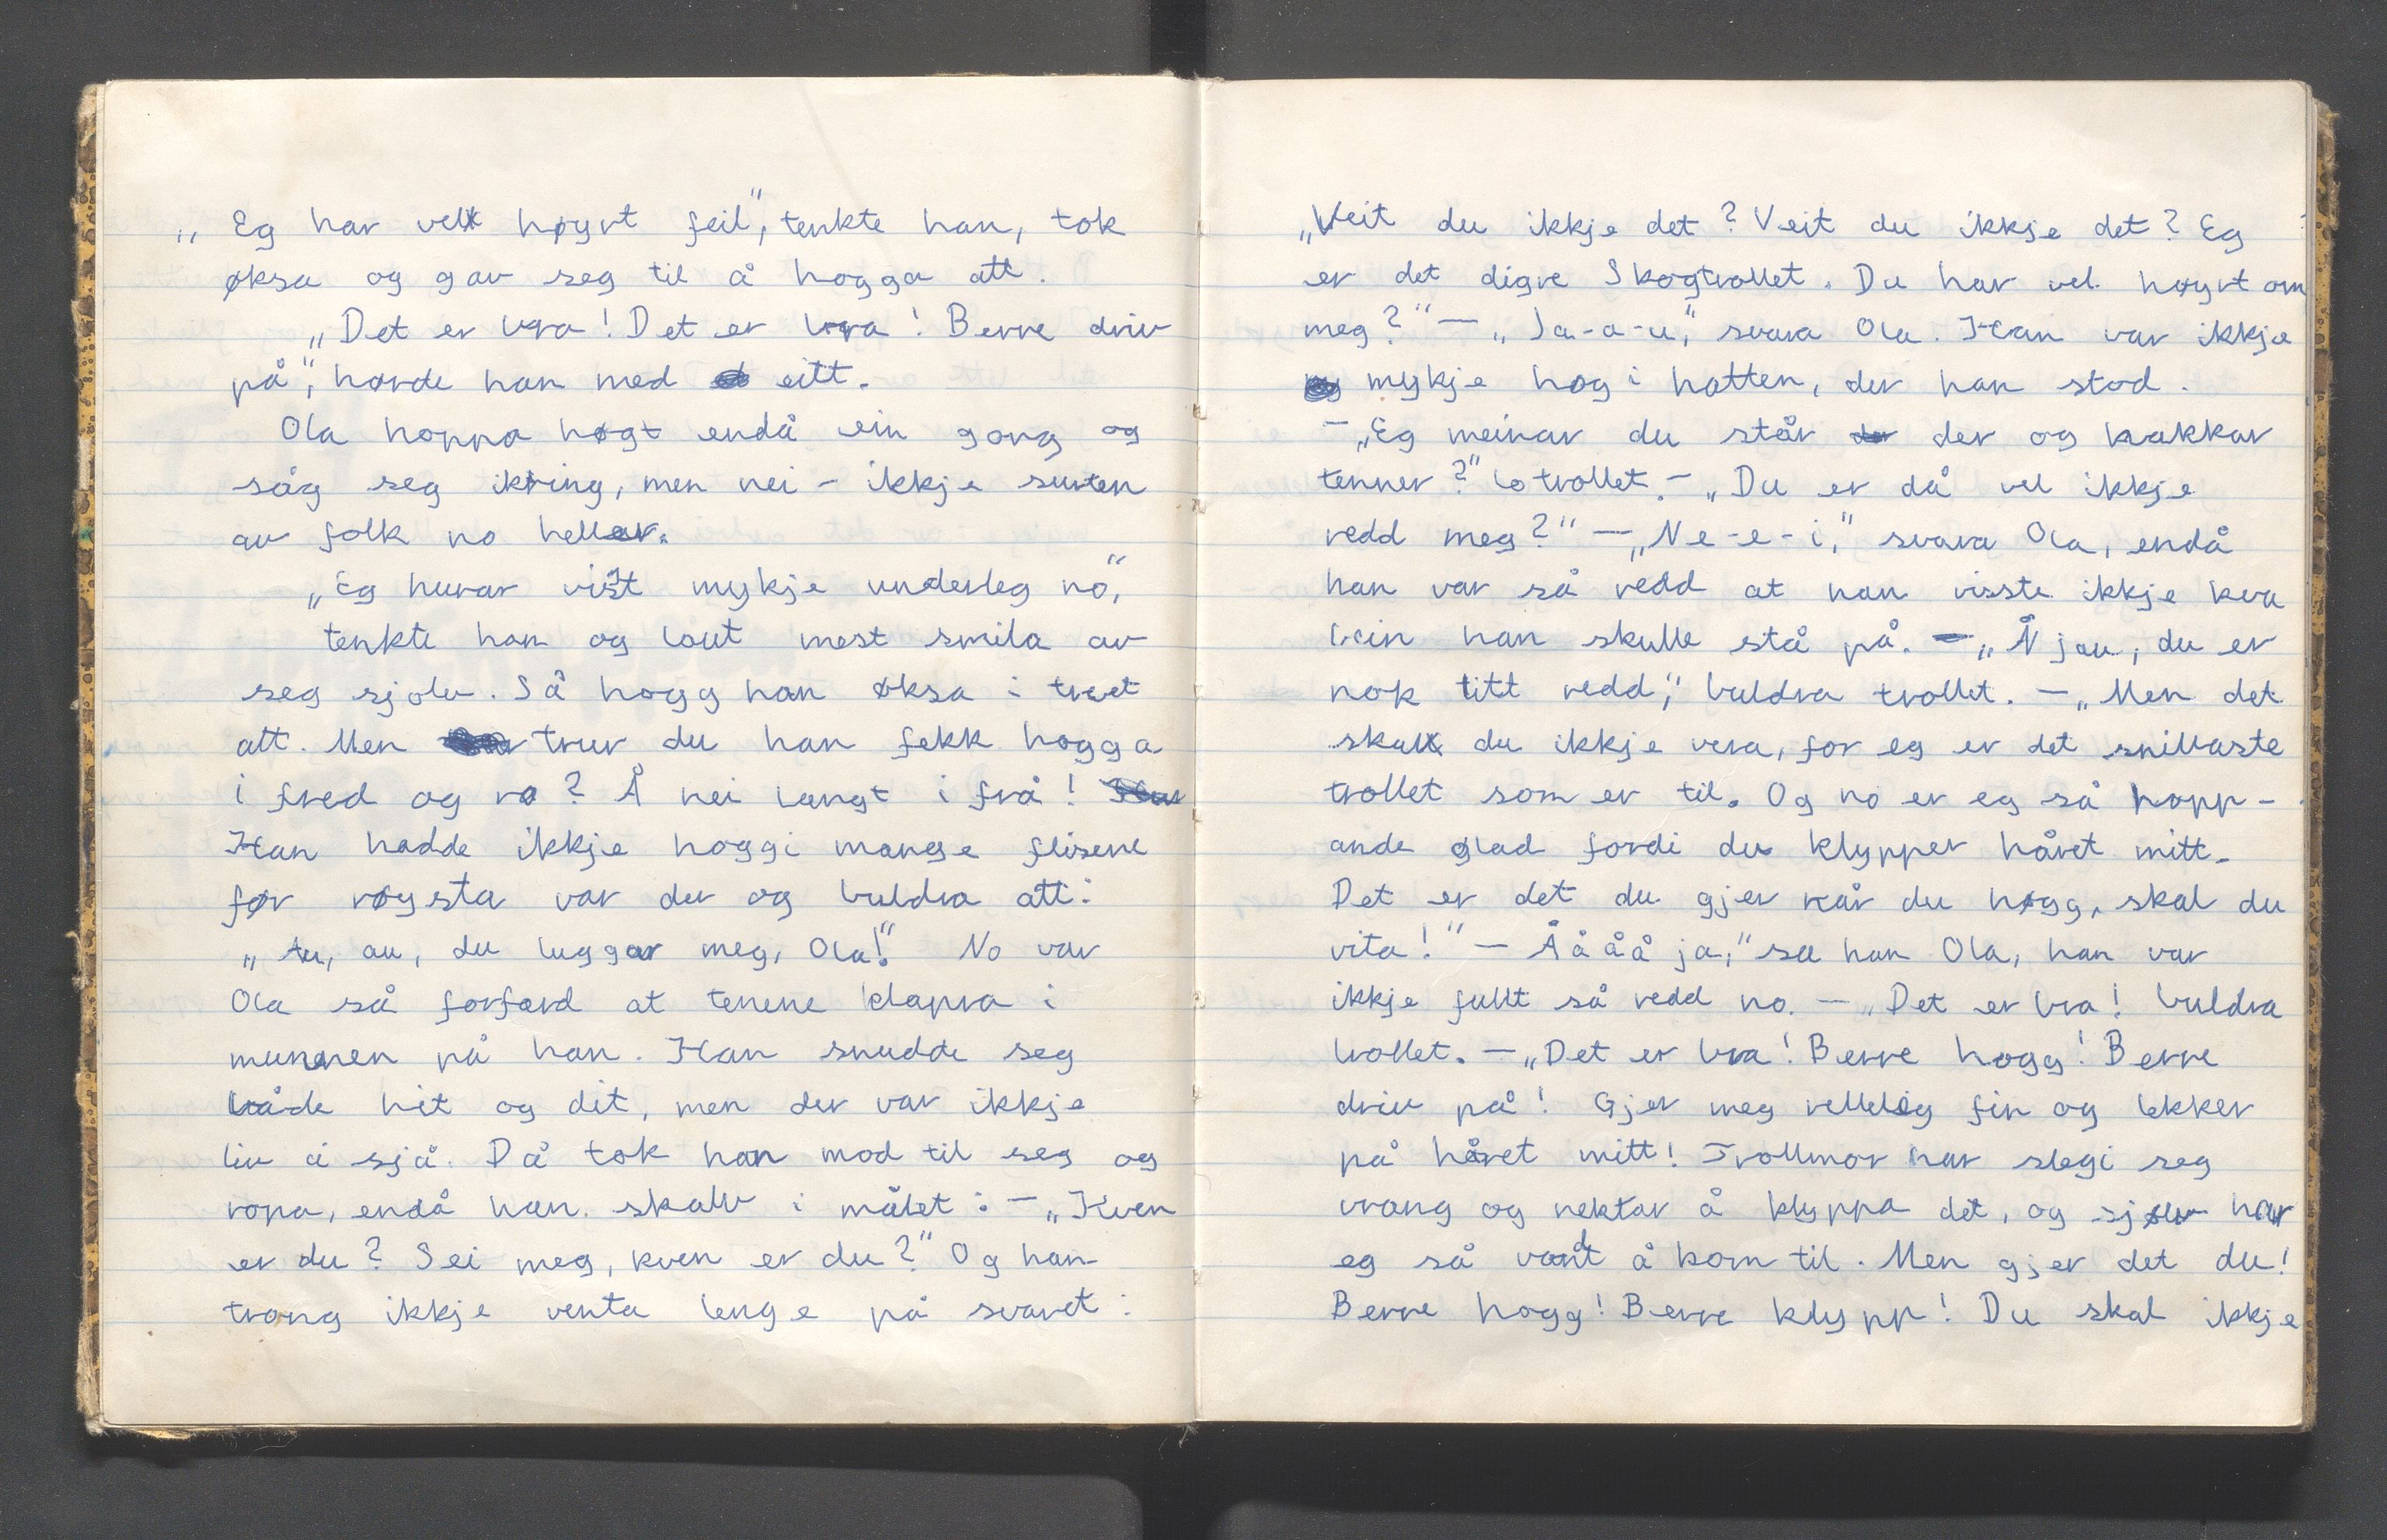 „Eg har vel høyrt feil", tenkte han, tok
øksa og gav seg til å hogga att.
„Det er bra! Det er bra! Berre driv
på", høyrde han med eitt.
Ola hoppa høgt endå ein gong og
såg seg ikring, men nei - ikkje snurten
av folk no heller.
„Eg hurar visst mykje underleg no",
tenkte han og lout mest smila av
seg sjølv. Så hogg han øksa i treet
att. Men trur du han fekk hogga
i fred og ro? Å nei langt i frå!
Han hadde ikkje hoggi mange flisene
før røysta var der og buldra att:
„Au, au, du luggar meg, Ola!" No var
Ola så forfærd at tenene klapra i
munnen på han. Han snudde seg
både hit og dit, men der var ikkje
liv å sjå. Då tok han mod til seg og
ropa, endå han skalv i målet: - „Kven
er du? Sei meg, kven er du?" Og han
trong ikkje venta lenge på svaret:
„Veit du ikkje det? Veit du ikkje det? Eg
er det digre Skogtrollet. Du har vel høyrt om
meg?" - „Ja-a-a", svara Ola. Han var ikkje
mykje høg i hatten, der han stod.
- „Eg meinar du står der og kakkar
tenner?" lo trollet. - „Du er då vel ikkje
redd meg?" - „Ne-e-i," svara Ola, endå
han var så redd at han visste ikkje kva
bein han skulle stå på. - „Å jau, du er
nok litt redd", buldra trollet. - „Men det
skal du ikkje vera, for eg er det snillaste
trollet som er til. Og no er eg så hopp-
ande glad fordi du klypper håret mitt.
Det er det du gjer når du høgg, skal du
vita!" - Åååå ja," sa han Ola, han var
ikkje fullt så redd no. - „Det er bra! buldra
trollet. - „Det er bra! Berre hogg! Berre
driv på! Gjer meg velleleg fin og lekker
på håret mitt! Trollmor har slegi seg
vrang og nektar å klyppa det, og sjølv har
eg så vondt å kom til. Men gjer det du!
Berre hogg! Berre klypp! Du skal ikkje